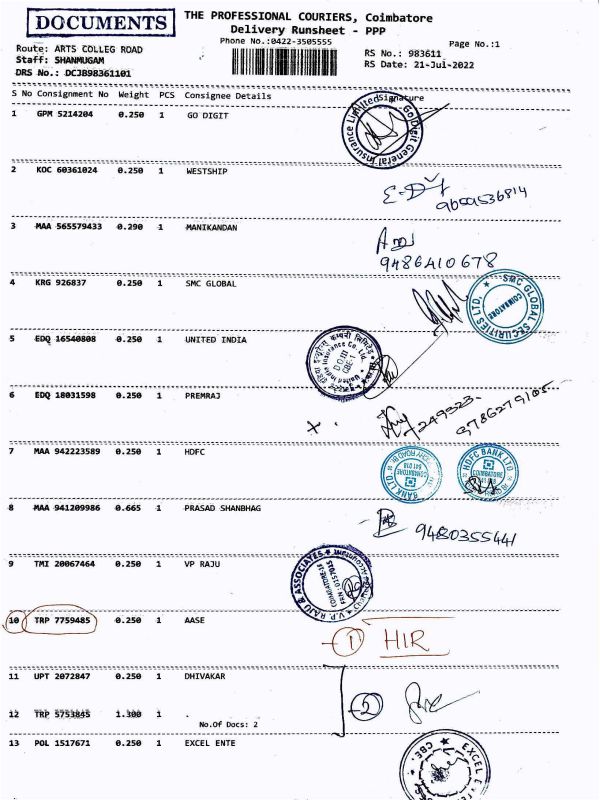 DOCUMENTS
THE PROFESSIONAL COURIERS, Coimbatore
Delivery Runsheet - PPP
Phone No.:0422-3505555
Page No.:1
Route: ARTS COLLEG ROAD
Staff: SHANMUGAM
DRS No.: DCJB98361101
RS No.: 983611
RS Date: 21-Jul-2022
S No Consignment No Weight PCS Consignee Details Signature
1 GPM 5214204 0.250 1 GO DIGIT
Go Digit General Insurance Limited
2 KOC 60361024 0.250 1 WESTSHIP
9659536814
3 MAA 565579433 0.290 1 MANIKANDAN
9486410678
4 KRG 926837 0.250 1 SMC GLOBAL
SMC GLOBAL SECURITIES LTD.
COIMBATORE
5 EDQ 16540808 0.250 1 UNITED INDIA
United India Insurance Co. Ltd.
D.O.III
CBE-1
6 EDQ 18031598 0.250 1 PREMRAJ
9786279105
7 MAA 942223589 0.250 1 HDFC
BANK LTD.
COIMBATORE
641 018
HDFC BANK LTD
COIMBATORE
641 018
8 MAA 941209986 0.665 1 PRASAD SHANBHAG
9480355441
9 TMI 20067464 0.250 1 VP RAJU
V.P. RAJU & ASSOCIATES
COIMBATORE-18
10 TRP 7759485 0.250 1 AASE
1 HIR
11 UPT 2072847 0.250 1 DHIVAKAR
2
12 TRP 5753845 1.300 1
No.Of Docs: 2
13 POL 1517671 0.250 1 EXCEL ENTE
EXCEL
CBE.